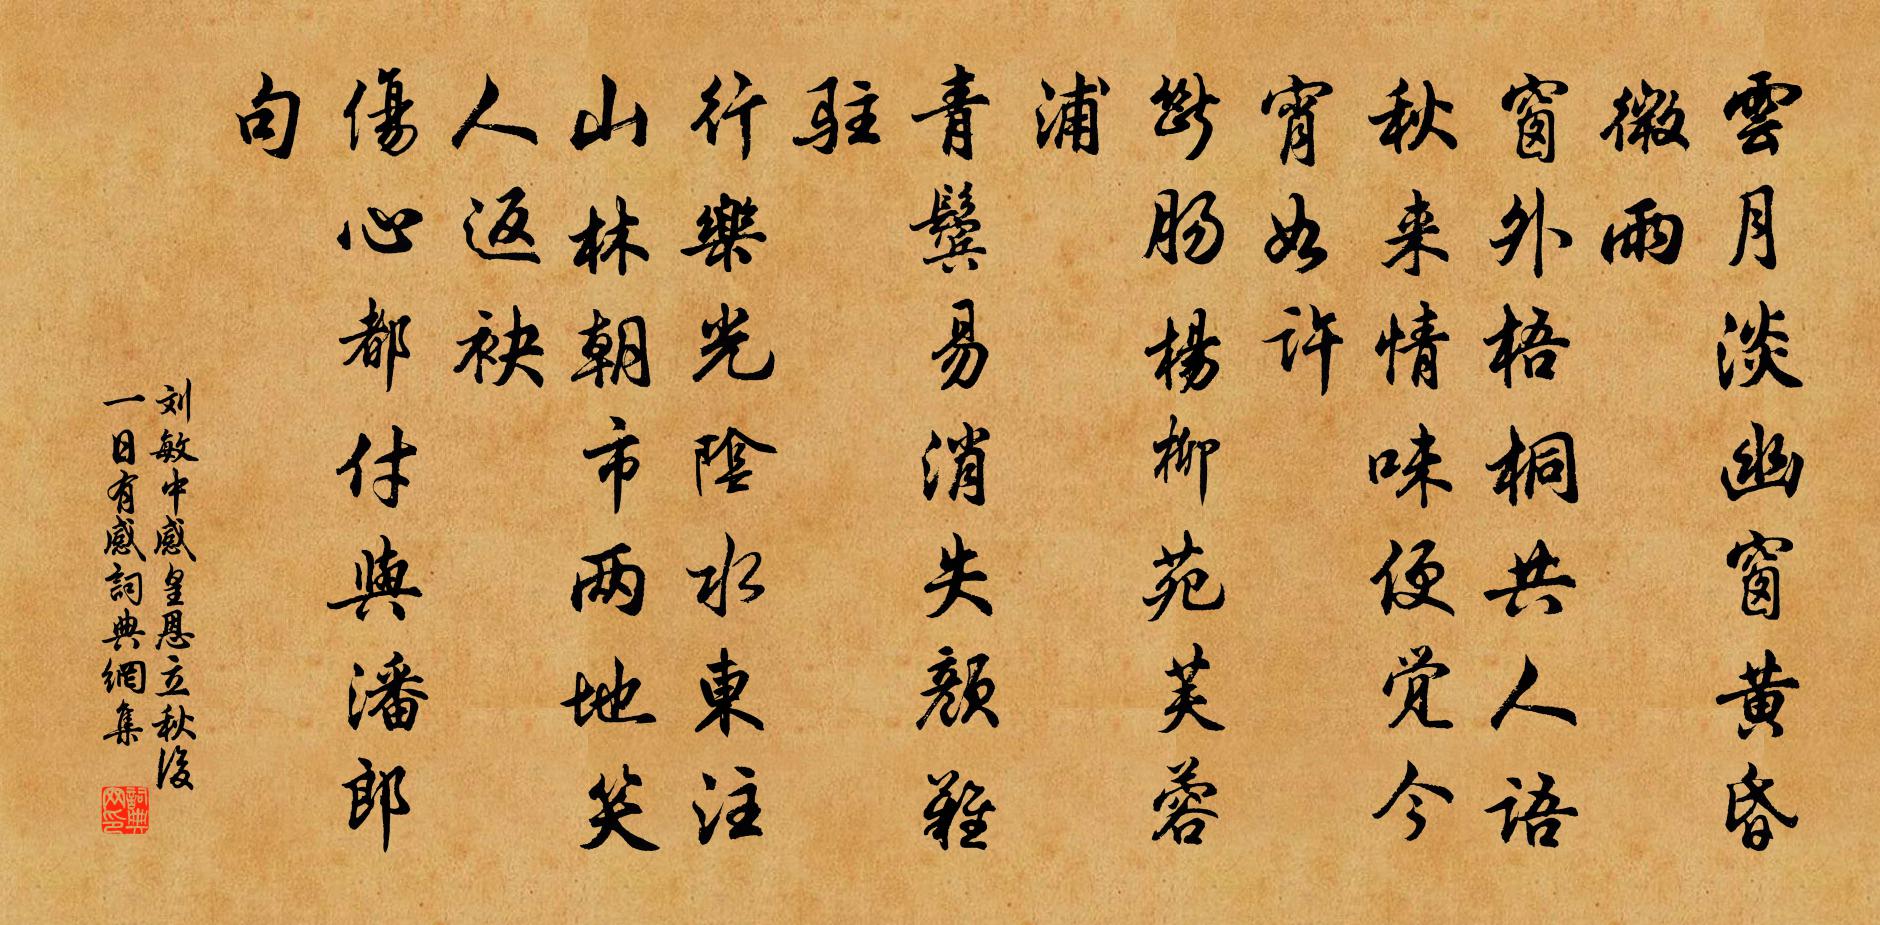 雲月淡幽窗黃昏
微雨
窗外梧桐共人語
秋来情味便覺今
宵如許
斷腸楊柳苑芙蓉
浦
青鬢易消失顏難
駐
行樂光陰水東注
山林朝市兩地笑
人返袂
傷心都付與潘郎
句
刘敏中感皇恩立秋後
一日有感詞典網集
詞典
网印